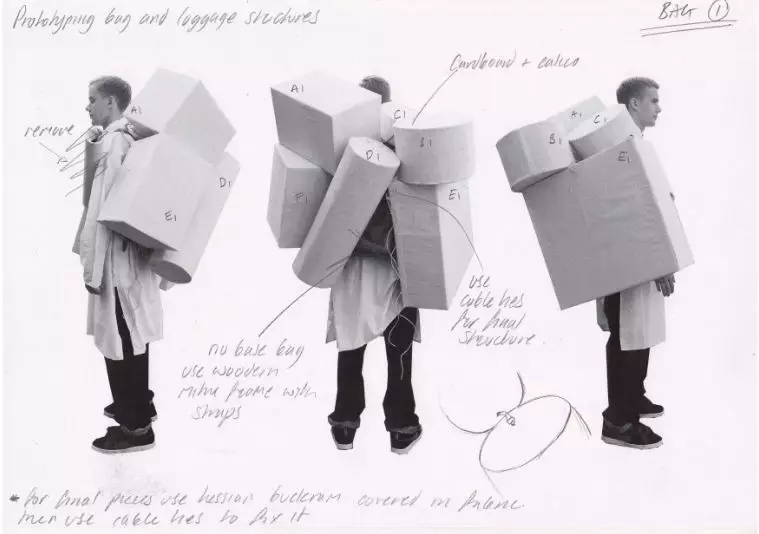 Prototyping bag and luggage structures
BAG 1
Cardboard + calico
remove
A1
E1
D1
A1
C1
B1
D1
F1
E1
A1
C1
B1
E1
use
cable ties
for final
structure.
no base bag
use wooden
frame with
straps
* for final pieces use hessian buckram covered in
then use cable ties to fix it